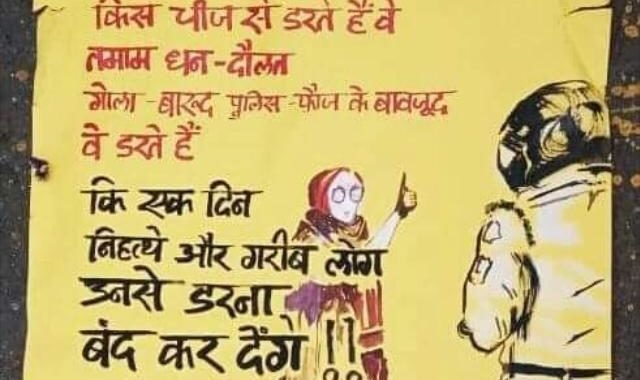 किस चीज से डरते हैं वे
तमाम धन-दौलत
गोला-बारूद पुलिस-फौज के बावजूद
वे डरते हैं
कि एक दिन
निहत्थे और गरीब लोग
उनसे डरना
बंद कर देंगे !!